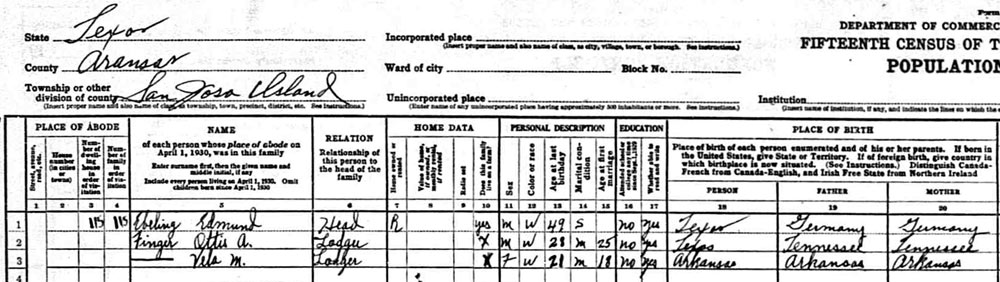 Form
State Texas
Incorporated place
DEPARTMENT OF COMMERC
(Insert proper name and also name of class, as city, village, town, or borough. See instructions.)
FIFTEENTH CENSUS OF T
County Aransas
Ward of city Block No.
POPULATION
Township or other division of county San Jose Island
(Insert proper name and also name of class, as township, town, precinct, district, etc. See instructions.)
Unincorporated place
(Enter name of any unincorporated place having approximately 500 inhabitants or more. See instructions.)
Institution
(Insert name of institution, if any, and indicate the lines on which the e
PLACE OF ABODE NAME RELATION HOME DATA PERSONAL DESCRIPTION EDUCATION PLACE OF BIRTH
Street, avenue, road, etc.
House number (in cities or towns)
Number of dwelling in order of visitation
Number of family in order of visitation
of each person whose place of abode on April 1, 1930, was in this family
Enter surname first, then the given name and middle initial, if any
Include every person living on April 1, 1930. Omit children born since April 1, 1930
Relationship of this person to the head of the family
Home owned or rented
Radio set
Does this family live on a farm
Sex
Color or race
Age at last birthday
Marital condition
Age at first marriage
Whether able to read and write
Place of birth of each person enumerated and of his or her parents. If born in the United States, give State or Territory. If of foreign birth, give country in which birthplace is now situated. (See Instructions.) Distinguish Canada-French from Canada-English, and Irish Free State from Northern Ireland
PERSON FATHER MOTHER
1 2 3 4 5 6 7 8 9 10 11 12 13 14 15 16 17 18 19 20
1 115 115 Ebeling Edmund Head R yes M W 49 S no yes Texas Germany Germany
2 Finger Ottis A. Lodger X M W 28 M 25 no yes Texas Tennessee Tennessee
3 Vela M. Lodger X F W 21 M 18 no yes Arkansas Arkansas Arkansas
4